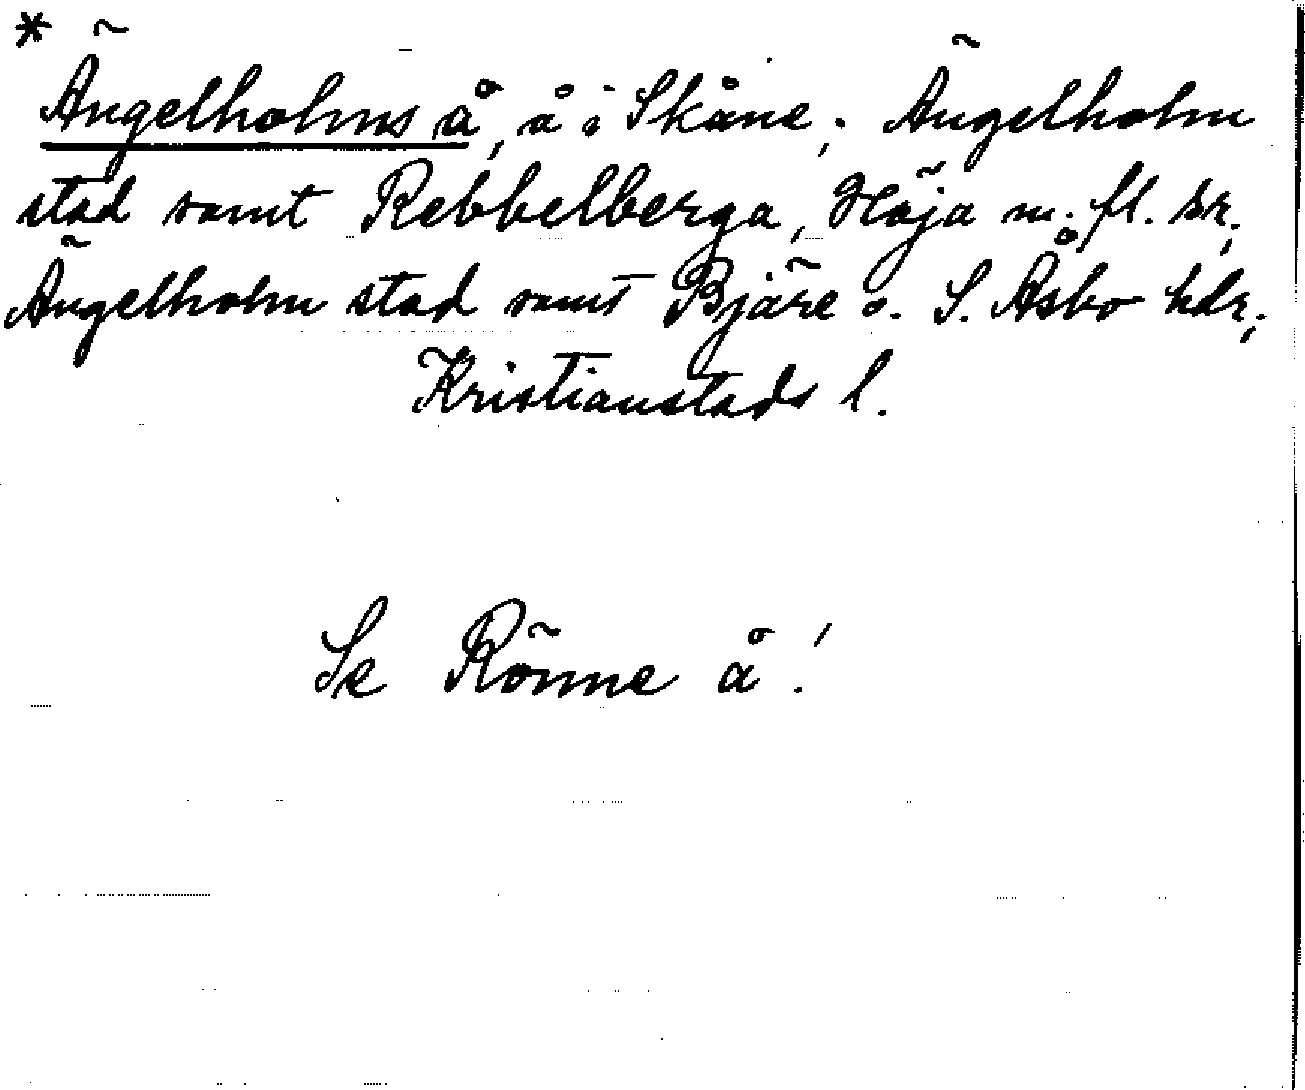 *
Ängelholms å, å i Skåne; Ängelholm
stad samt Rebbelberga, Höja m. fl. snr;
Ängelholm stad samt Bjäre o. S. Åsbo hdr;
Kristianstads l.
Se Rönne å!